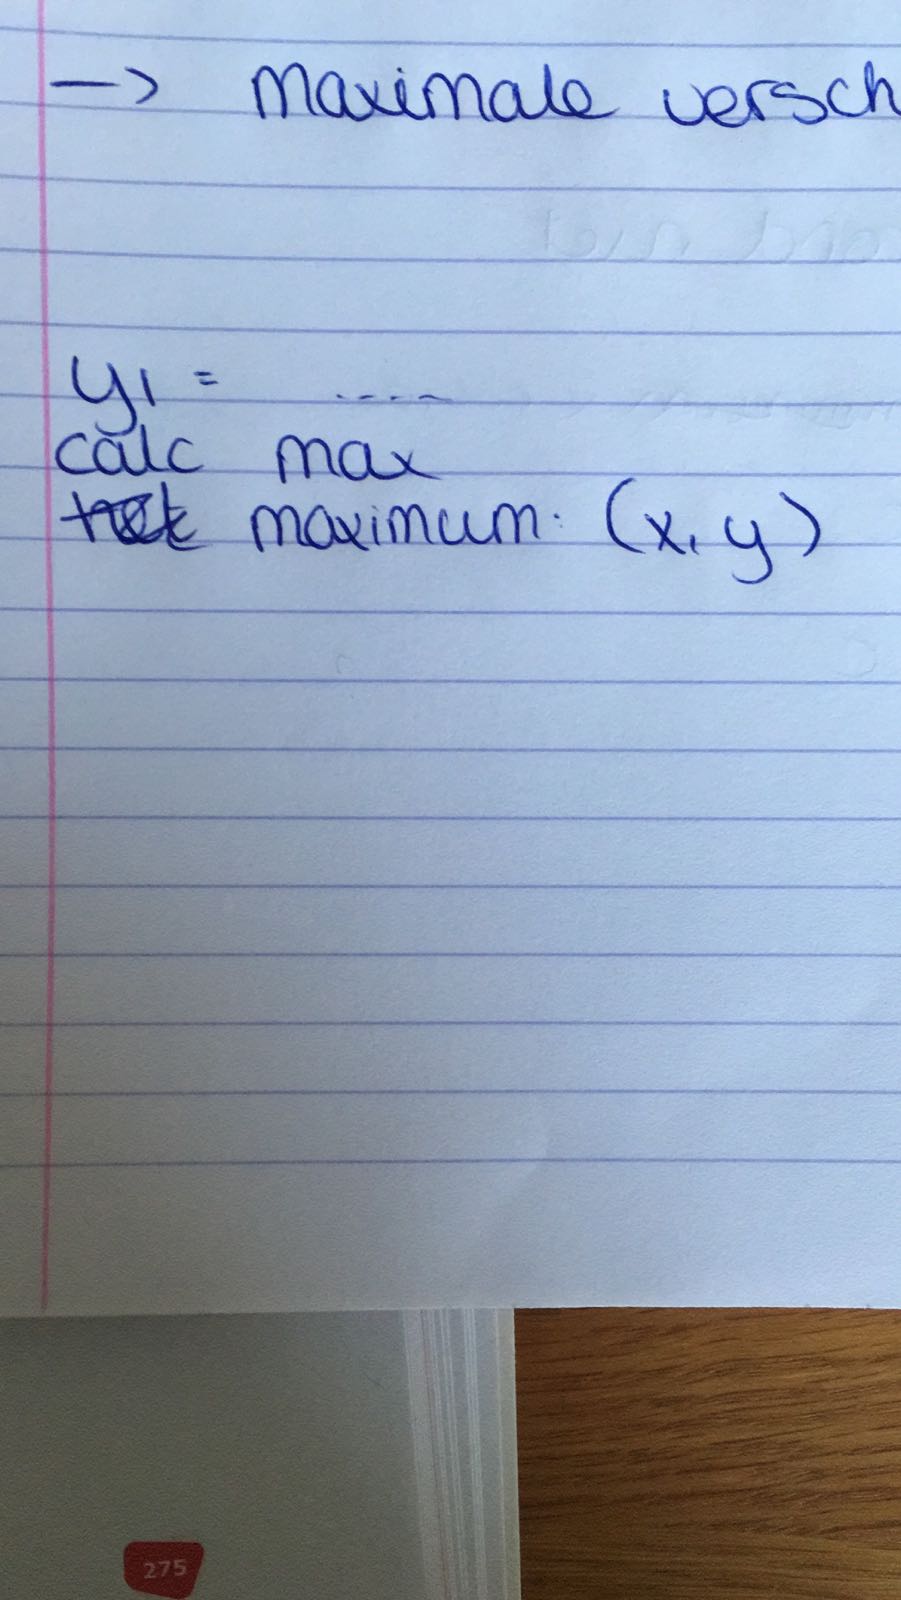 —> maximale versch
y1 = ....
calc max
maximum: (x, y)
275